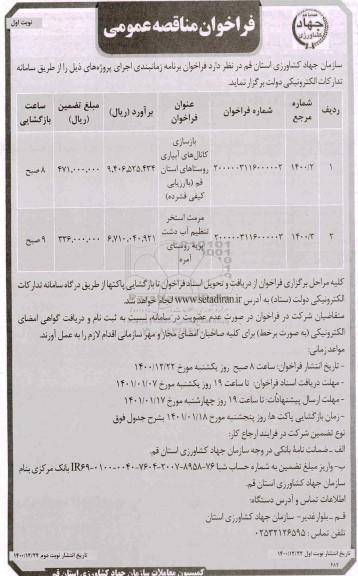 نوبت اول
فراخوان مناقصه عمومی
جهاد کشاورزی
سازمان جهاد کشاورزی استان قم در نظر دارد فراخوان برنامه زمانبندی اجرای پروژه‌های ذیل را از طریق سامانه
تدارکات الکترونیکی دولت برگزار نماید.
ردیف | شماره مرجع | شماره فراخوان | عنوان فراخوان | برآورد (ریال) | مبلغ تضمین (ریال) | ساعت بازگشایی
۱ | ۱۴۰۰/۲ | ۲۰۰۰۰۰۳۱۱۶۰۰۰۰۰۲ | بازسازی کانال‌های آبیاری روستاهای استان قم (باارزیابی کیفی فشرده) | ۹،۴۰۶،۵۲۵،۴۳۴ | ۴۷۱،۰۰۰،۰۰۰ | ۸ صبح
۲ | ۱۴۰۰/۳ | ۲۰۰۰۰۰۳۱۱۶۰۰۰۰۰۳ | مرمت استخر تنظیم آب دشت بریه روستای آمره | ۶،۷۱۰،۰۴۰،۹۲۱ | ۳۳۶،۰۰۰،۰۰۰ | ۹ صبح
کلیه مراحل برگزاری فراخوان از دریافت و تحویل اسناد فراخوان تا بازگشایی پاکتها از طریق درگاه سامانه تدارکات
الکترونیکی دولت (ستاد) به آدرس www.setadiran.ir انجام خواهد شد.
متقاضیان شرکت در فراخوان در صورت عدم عضویت در سامانه، نسبت به ثبت نام و دریافت گواهی امضای
الکترونیکی (به صورت برخط) برای کلیه صاحبان امضای مجاز و مهر سازمانی اقدام لازم را به عمل آورند.
مواعد زمانی:
- تاریخ انتشار فراخوان: ساعت ۸ صبح روز یکشنبه مورخ ۱۴۰۰/۱۲/۲۲
- مهلت دریافت اسناد فراخوان: تا ساعت ۱۹ روز یکشنبه مورخ ۱۴۰۱/۰۱/۰۷
- مهلت ارسال پیشنهادات: تا ساعت ۱۹ روز چهارشنبه مورخ ۱۴۰۱/۰۱/۱۷
- زمان بازگشایی پاکت ها: روز پنجشنبه مورخ ۱۴۰۱/۰۱/۱۸ بشرح جدول فوق
نوع تضمین شرکت در فرایند ارجاع کار:
الف - ضمانت نامهٔ بانکی در وجه سازمان جهاد کشاورزی استان قم.
ب- واریز مبلغ تضمین به شماره حساب شبا IR۶۹-۰۱۰۰-۰۰۴۰-۷۶۰۴-۲۰۰۷-۸۹۵۸-۷۶ بانک مرکزی بنام
سازمان جهاد کشاورزی استان قم.
اطلاعات تماس و آدرس دستگاه:
قم - بلوار غدیر- سازمان جهاد کشاورزی استان قم
تلفن تماس: ۰۲۵۳۲۱۲۶۵۹۵
تاریخ انتشار نوبت اول: ۱۴۰۰/۱۲/۲۲
تاریخ انتشار نوبت دوم: ۱۴۰۰/۱۲/۲۴
کمیسیون معاملات سازمان جهاد کشاورزی استان قم